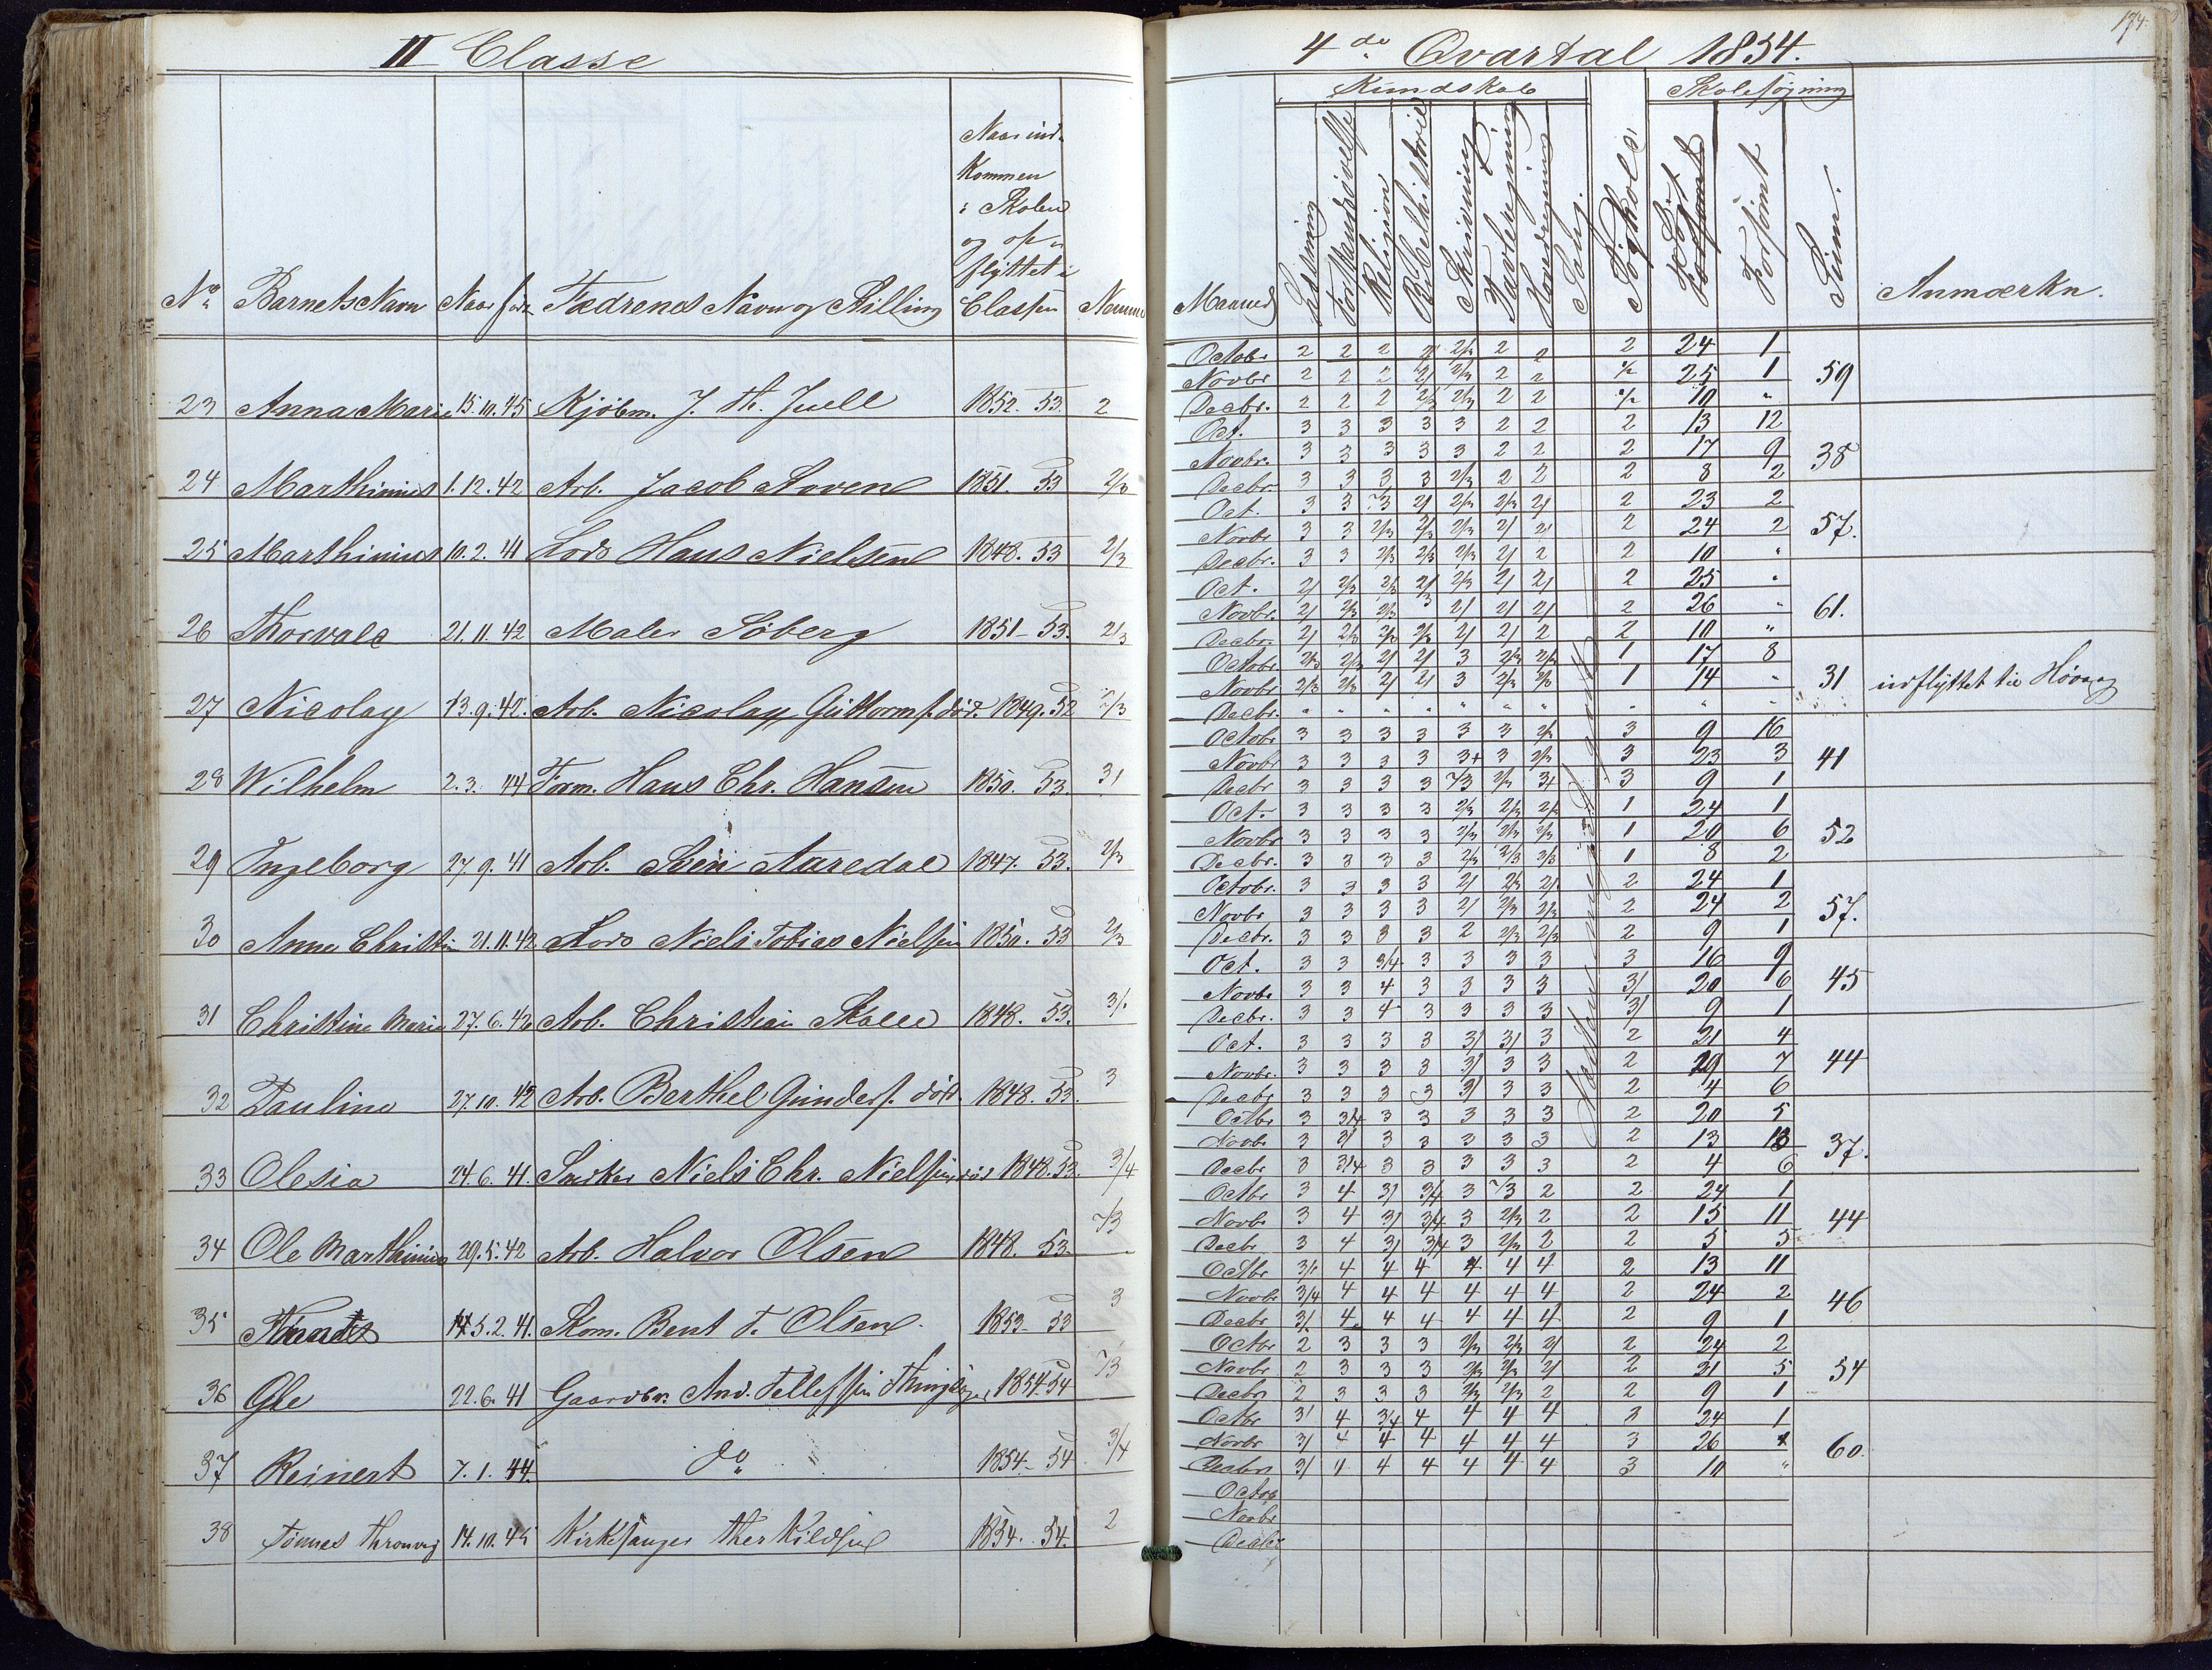 II Classe
No Barnets Navn Naar født Fædrenes Navn og Stilling Naar ind- kommen i Skolen og op- flyttet i Classen
23 Anna Marie 15.10.45 Kjøbm. J. Th. Juell 1852. 53. 2
24 Marthinius 1.12.42 Arb. Jacob 1851. 53 2/3
25 Marthinius 10.2.41 Lods Hans Nielsen 1848. 53 2/3
26 Thorvald 21.11.42 Maler Søberg 1851 - 53. 2/3
27 Nicolay 13.9.42. Arb. Nicolay Guttorms. død. 1849. 52 2/3
28 Wilhelm 2.3.44 Tøm. Hans Chr. Hansen 1850. 53. 31
29 Ingeborg 27.9.41 Arb. Aaredal 1847. 53. 2/3
30 Anne Christin 21.11.42 Lods Niels Tobias Nielsen 1850. 53 2/3
31 Christine Marie 27.6.42 Arb. Christian 1848. 53. 3/
32 Pauline 27.10.42 Arb. Berthel Gunders. død. 1848. 53. 3
33 Olesia 24.6.41. Niels Chr. Nielsen død 1848. 53. 3/4
34 Ole Marthinius 29.5.42 Arb. Halvor Olsen 1848. 53 2/3
35 5.2.41. Skom. Bent T. Olsen 1853 - 53 3
36 Ole 22.6.41 Gaardbr. And. Tellefsen 1854. 54 2/3
37 Reinert 7.1.44. do 1854 - 54 3/4
38 Tønnes 14.10.45 Kirkesanger Therkildsen 1854. 54. 2
174.
4de Qvartal 1854.
Kundskab Skolesøgning
Maaned Læsning Forstandsøvelse Religion Bibelhistorie Skrivning Tavleregning Hovedregning Sang. Forsømt Anmærkn.
Octobr. 2 2 2 2/ 2/3 2 2 2 24 1
Novbr. 2 2 2 2/ 2/3 2 2 25 1 59
Decbr. 2 2 2 2/3 2/3 2 2 10 "
Oct. 3 3 3 3 3 2 2 2 13 12
Novbr. 3 3 3 3 3 2 2 2 17 9 38
Decbr. 3 3 3 3 2/3 2 2 2 8 2
Oct. 3 3 2/3 2/ 2/3 2/3 2/ 2 23 2
Novbr. 3 3 2/3 2/3 2/3 2/ 2/ 2 24 2 57.
Decbr. 3 3 2/3 2/3 2/3 2/ 2 2 10 "
Oct. 2/ 2/3 2/3 2/ 2/3 2/ 2/ 2 25 "
Novbr. 2/ 2/3 2/3 3 2/ 2/ 2/ 2 26 " 61.
Decbr. 2/ 2/3 2/3 2/3 2/ 2/ 2 2 10 "
Octobr. 2/3 2/3 2/ 2/ 3 2/3 2/3 1 17 8
Novbr. 2/3 2/3 2/ 2/ 3 2/3 2/3 1 14 " 31 udflyttet til Høvaag
Decbr. " " " " " " " " " "
Octobr. 3 3 3 3 3 3 2/3 3 9 16
Novbr. 3 3 3 3 3+ 3 2/3 3 23 3 41
Decbr. 3 3 3 3 2/3 2/3 3+ 3 9 1
Oct. 3 3 3 3 2/3 2/3 2/3 1 24 1
Novbr. 3 3 3 3 2/3 2/3 2/3 1 20 6 52
Decbr. 3 3 3 3 2/3 2/3 2/3 1 8 2
Octobr. 3 3 3 3 2/ 2/3 2/ 2 24 1
Novbr. 3 3 3 3 2/ 2/3 2/3 2 24 2 57.
Decbr. 3 3 3 3 2 2/3 2/3 2 9 1
Oct. 3 3 3/4 3 3 3 3 3 16 9
Novbr. 3 3 4 3 3 3 3 3/ 20 6 45
Decbr. 3 3 4 3 3 3 3 3/ 9 1
Oct. 3 3 3 3 3/ 3/ 3 2 21 4
Novbr. 3 3 3 3 3/ 3 3 2 19 7 44
Decbr. 3 3 3 3 3/ 3 3 2 4 6
Octbr. 3 3/4 3 3 3 3 3 2 20 5
Novbr. 3 3/ 3 3 3 3 3 2 13 13 37.
Decbr. 3 3/4 3 3 3 3 3 2 4 6
Octbr. 3 4 3/ 3/4 3 2/3 2 2 24 1
Novbr. 3 4 3/ 3/4 3 2/3 2 2 15 11 44
Decbr. 3 4 3/ 3/4 3 2/3 2 2 5 5
Octbr. 3/ 4 4 4 4 4 4 2 13 11
Novbr. 3/4 4 4 4 4 4 4 2 24 2 46
Decbr. 3/ 4 4 4 4 4 4 2 9 1
Octbr. 2 3 3 3 2/3 2/3 2/ 2 24 2
Novbr. 2 3 3 3 2/3 2/3 2/ 2 21 5 54
Decbr. 2 3 3 3 2/3 2/3 2 2 9 1
Octbr. 3/ 4 3/4 4 4 4 4 3 24 1
Novbr. 3/ 4 4 4 4 4 4 3 26 60.
Decbr. 3/ 4 4 4 4 4 4 3 10 "
Octobr.
Novbr.
Decbr.